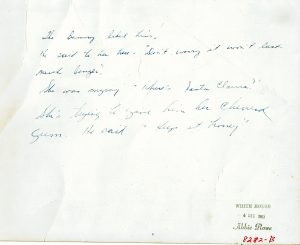 The Bunny liked him.
He said to her here - "Don't worry it won't last
much longer."
She was saying "Where's Santa Claus?"
She's trying to give him her Chewed
Gum. He said " Keep it Honey"
WHITE HOUSE
4 DEC 1963
Abbie Rowe
8282-B